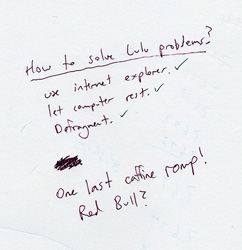 How to solve Lulu problems?
use internet explorer. ✓
let computer rest. ✓
Defragment. ✓
One last caffine romp!
Red Bull?